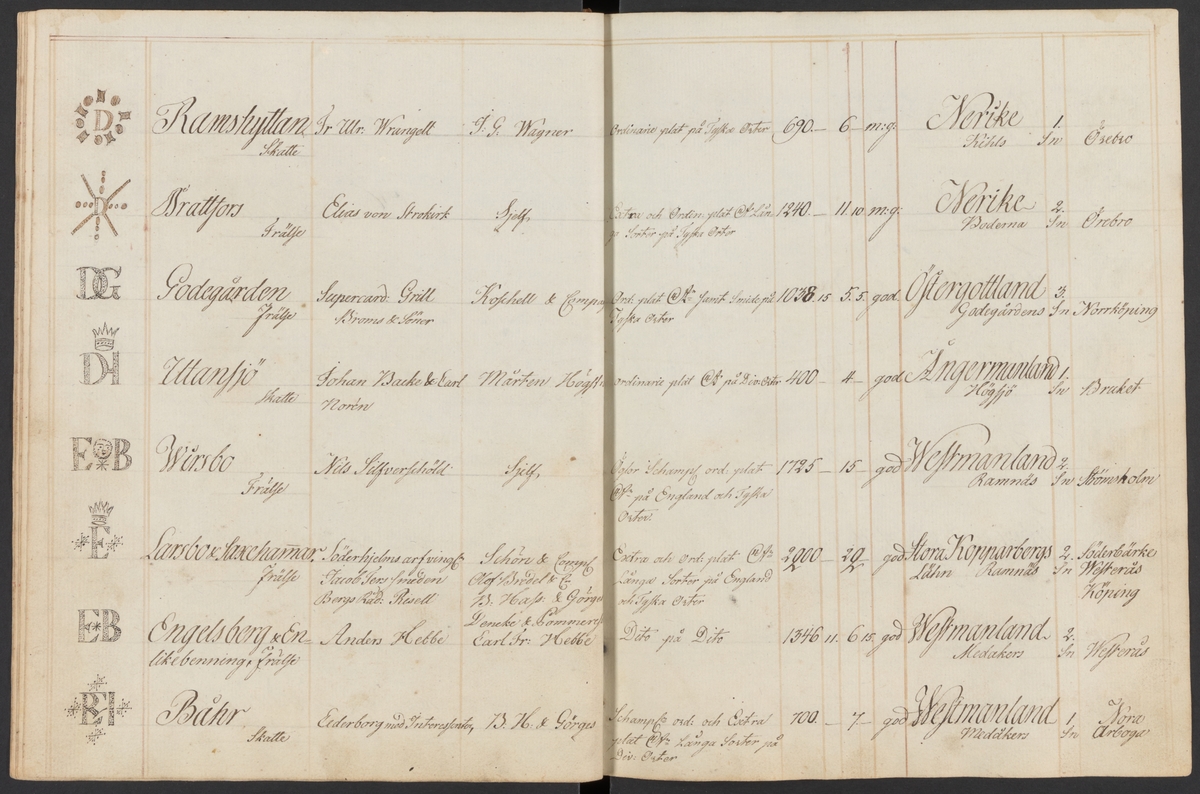 D Ramshyttan Fr Ulr. Wrangell J. G. Wagner Ordinarie plat på Tyska Orter 690.— 6— m:g: Nerike 1.
Skatte Kihls Sn Örebro
D Brattfors Elias von Strokirk Sjelf, Extra och Ordin. plat Lån- 1240.— 11. 10 m:g: Nerike 2.
Frälse ga Sorter på Tyska Orter Boderna Sn Örebro
DG Godegården Supercard: Grill Koschell & Compag Ord: plat samt Smide på 1038. 15 5. 5. god Östergottland 3.
Frälse Broms & Söner Tyska Orter Godegårdens Sn Norrköping
DH Uttansjö Johan Backe & Carl Mårten Högs ordinarie plat på Div: Orter 400— 4— god Ångermanland 1.
Skatte Norén Högsjö Sn Bruket
E B Wirsbo Nils Silfverschöld Sjelf, ord. plat 1725— 15— god Westmanland 2.
Frälse på England och Tyska Ramnäs Sn Strömsholm
Orter.
E Larsbo & Saxehamar. Söderhjelms arfving Schön & Comp Extra och Ord: plat 2900— 29— god Stora Kopparbergs 2. Söderbärke
Frälse Jacob Ters smeden Olof Brödel & C. Långa Sorter på England Lähn Ramnäs Sn Westerås
Bergs Råd: Risell B. Hass: & Görges och Tyska Orter Köping
Deneke &
EB Engelsberg & En- Anders Hebbe Carl Fr: Hebbe Dito på Dito 1346 11. 6 15. god Westmanland 2.
likebenning, Frälse Medåkers Sn Westerås
Båhr Cederborg med Interessenter, B. H. & Görges ord: och Extra 700.— 7— god Westmanland 1. Nora
Skatte plat Långa Sorter på Medåkers Sn Arboga
Div: Orter